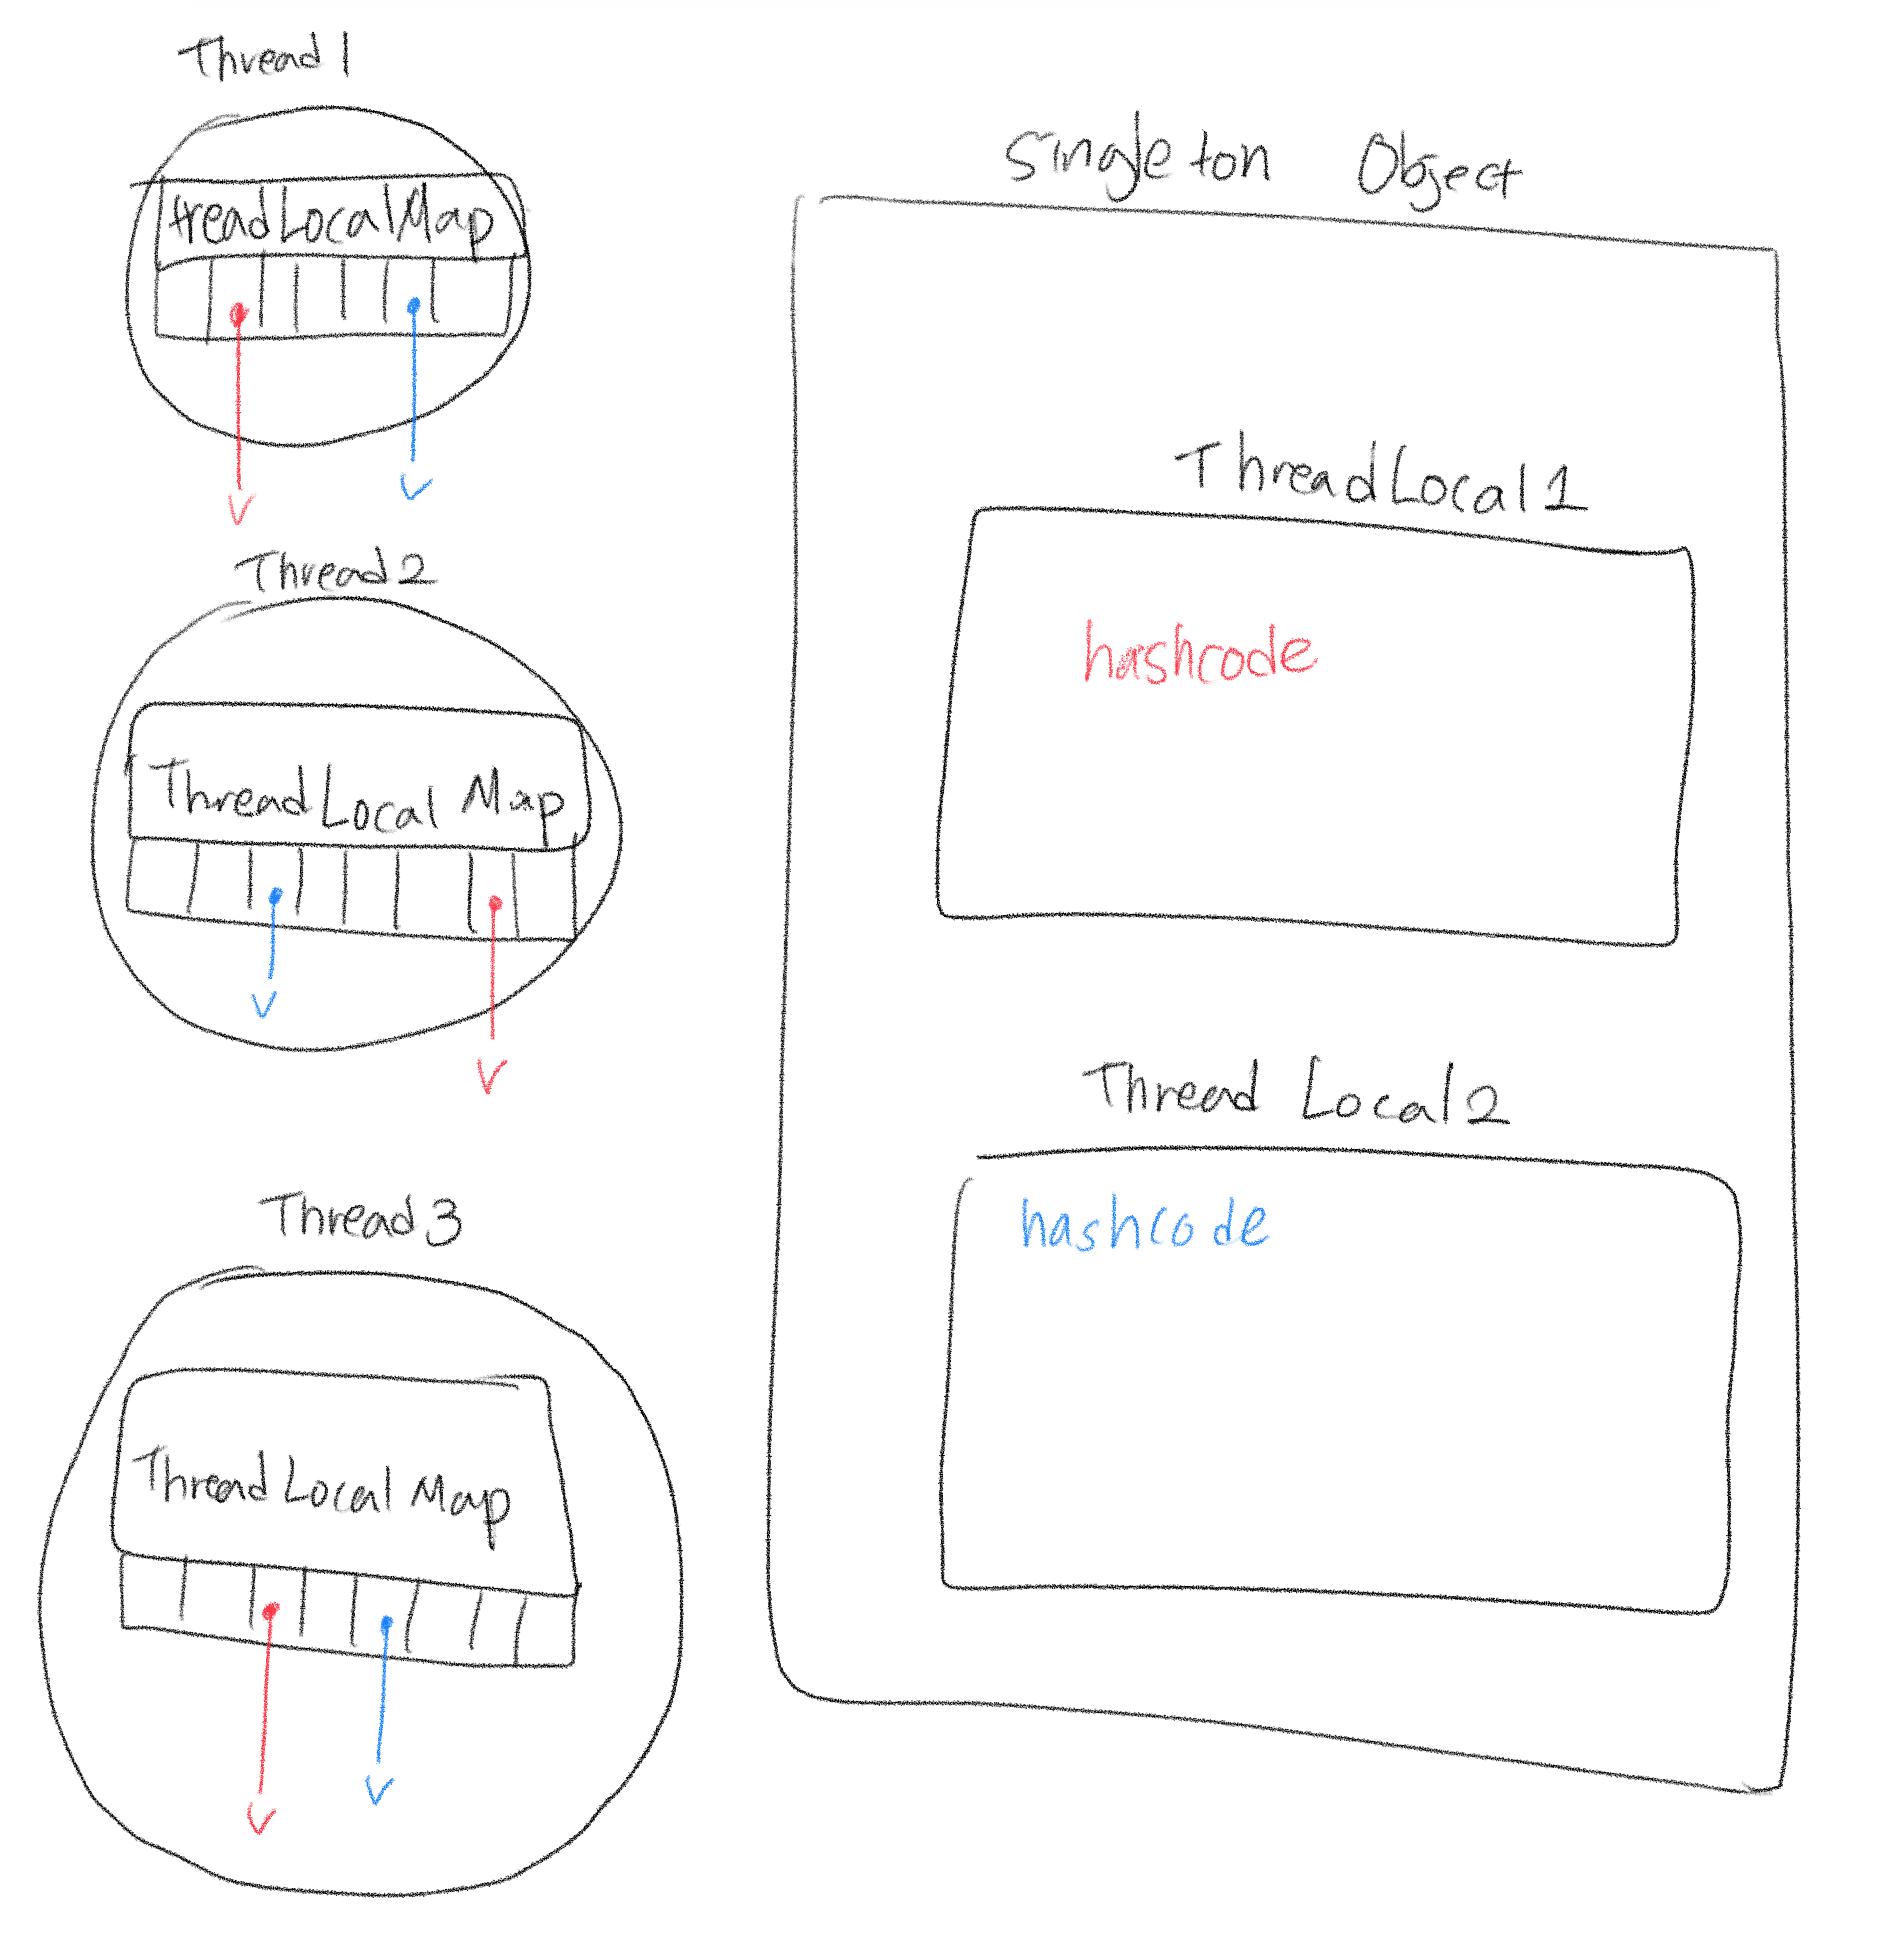 Thread 1
treadLocalMap
V
V
Thread 2
ThreadLocal Map
V
V
Thread 3
ThreadLocal Map
V
V
Singleton Object
ThreadLocal 1
hashcode
Thread Local 2
hashcode